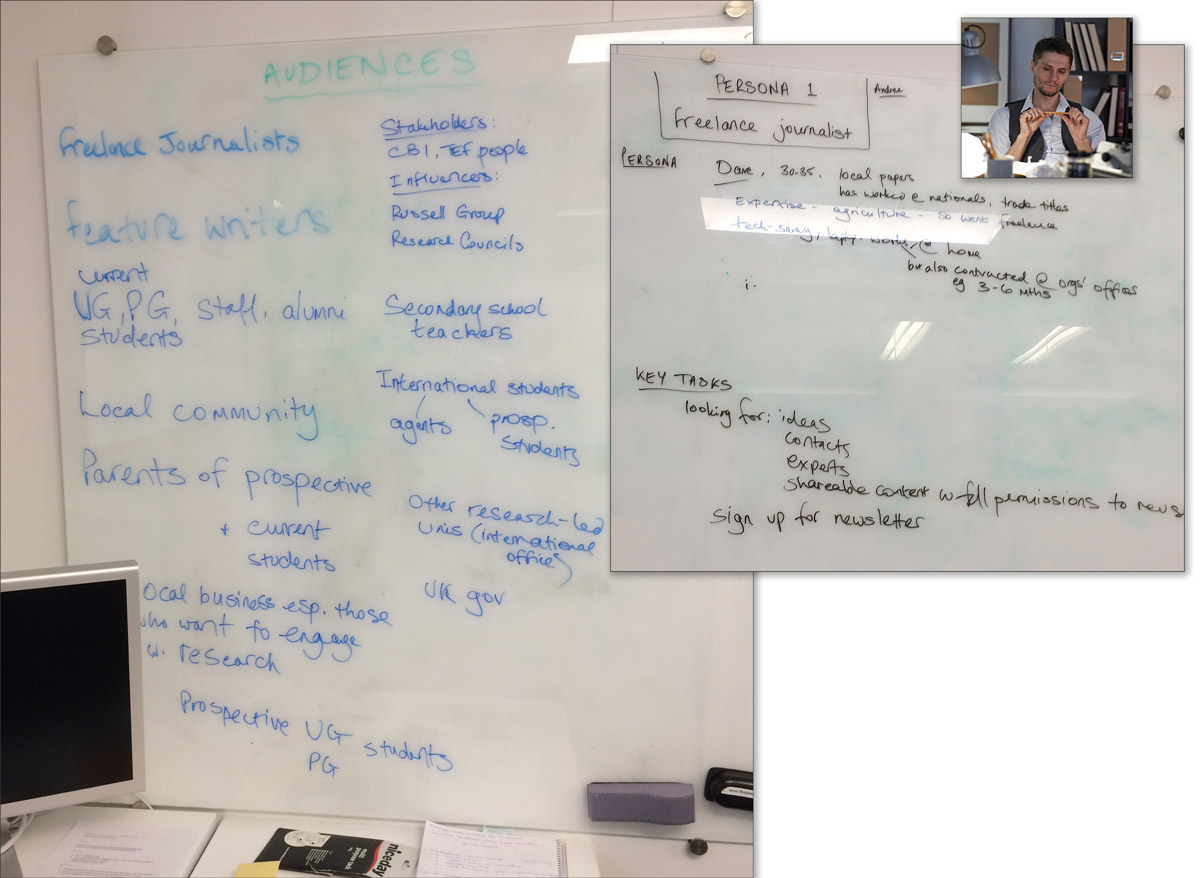 AUDIENCES
freelance Journalists
feature writers
current
UG, PG, staff, alumni
students
Local community
Parents of prospective
+ current
students
ocal business esp. those
who want to engage
w. research
Prospective UG students
PG
Stakeholders:
CBI, TEF people
Influencers:
Russell Group
Research Councils
Secondary school
teachers
International students
agents
prosp.
students
Other research-led
unis (international
offices)
UK gov
niceday
PERSONA 1
freelance journalist
Andrea
PERSONA
Dave, 30-35, local papers
has worked @ nationals, trade titles
Expertise - agriculture - so went freelance
tech-savvy, works @ home
but also contracted @ orgs' offices
eg 3-6 mths
i.
KEY TASKS
looking for: ideas
contacts
experts
shareable content w full permissions to news
sign up for newsletter